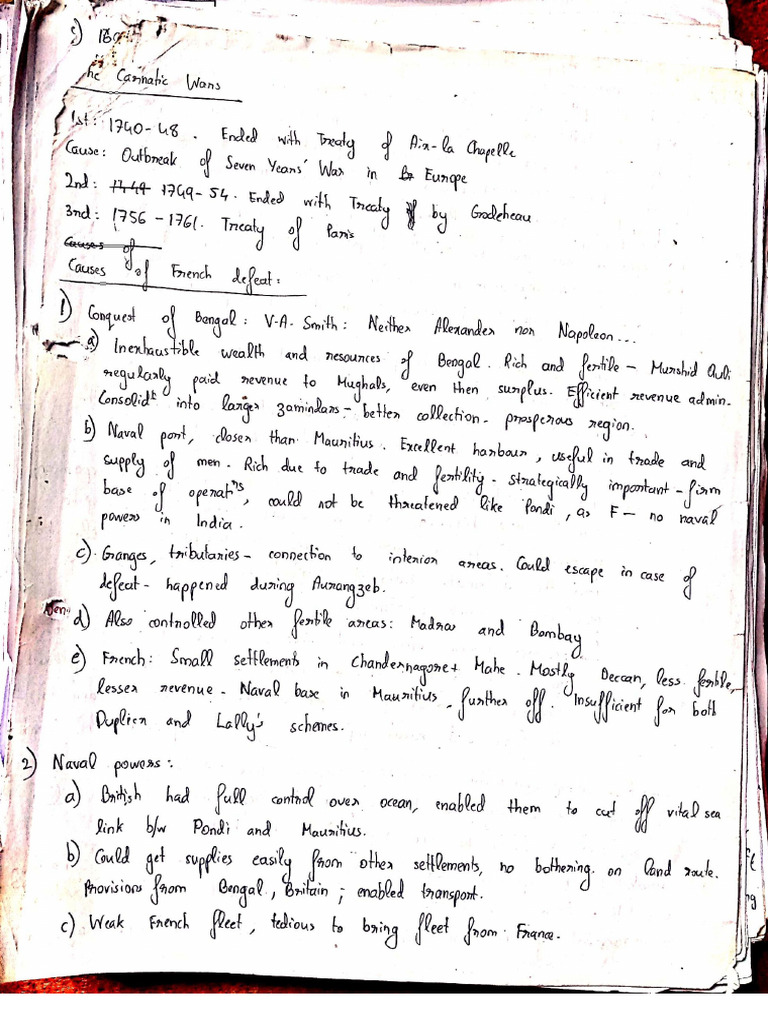 5)
he Carnatic Wars
1st: 1740-48. Ended with Treaty of Aix-la Chapelle
Cause: Outbreak of Seven Years' War in Europe
2nd: 1749 1749-54. Ended with Treaty by Godeheau
3rd: 1756-1761. Treaty of Paris
Causes of
Causes of French defeat:
1) Conquest of Bengal: V.A. Smith: Neither Alexander nor Napoleon...
a) Inexhaustible wealth and resources of Bengal. Rich and fertile - Murshid Quli
regularly paid revenue to Mughals, even then surplus. Efficient revenue admin.
Consolidt into larger zamindars - better collection - prosperous region.
b) Naval port, closer than Mauritius. Excellent harbour, useful in trade and
supply of men. Rich due to trade and fertility - strategically important - firm
base of operatns, could not be threatened like Pondi, as F - no naval
powers in India.
c). Ganges, tributaries - connection to interior areas. Could escape in case of
defeat - happened during Aurangzeb.
d) Also controlled other fertile areas: Madras and Bombay
e) French: Small settlements in Chandernagore + Mahe. Mostly Deccan, less fertile,
lesser revenue - Naval base in Mauritius, further off. Insufficient for both
Duplien and Lally's schemes.
2) Naval powers:
a) British had full control over ocean, enabled them to cut off vital sea
link b/w Pondi and Mauritius.
b) Could get supplies easily from other settlements, no bothering on land route.
Provisions from Bengal, Britain; enabled transport.
c) Weak French fleet, tedious to bring fleet from France.